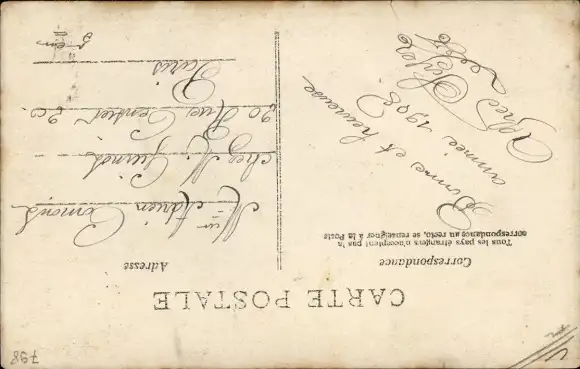 CARTE POSTALE
Correspondance
Tous les pays étrangers n'acceptent pas la
correspondance au recto, se renseigner à la Poste
Bonne et heureuse
année 1908
Adresse
Mr Adrien
chez M.
20 Rue Censier 20
Paris
5 em
798